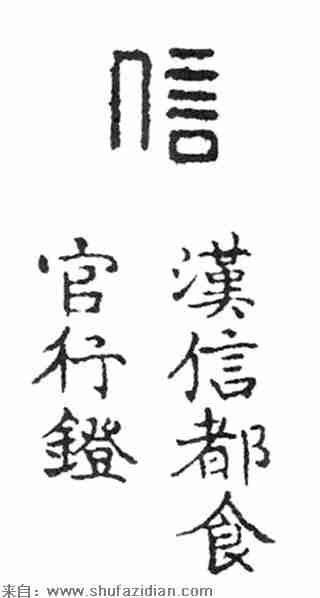 信
漢信都食
官行鐙
来自：www.shufazidian.com